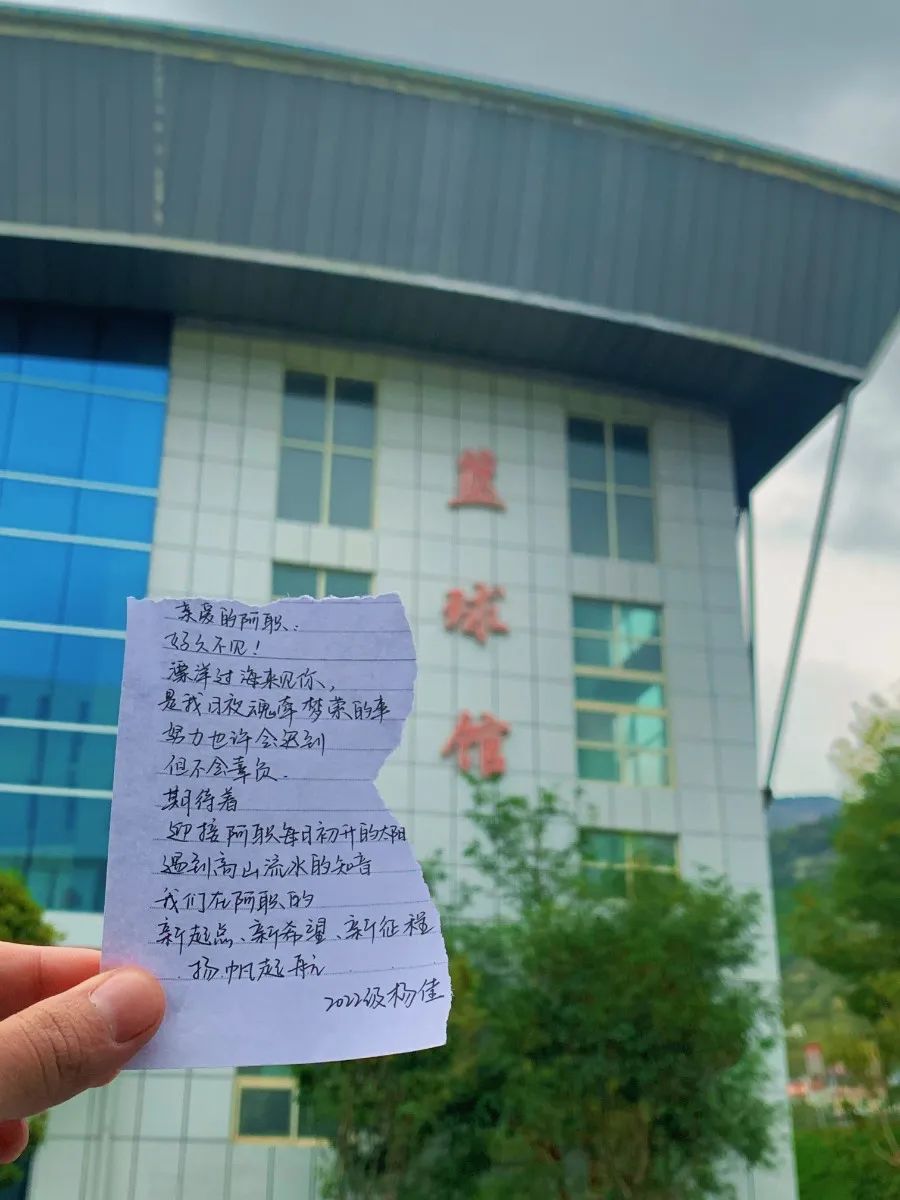 篮球馆
亲爱的阿职：
好久不见！
漂洋过海来见你，
是我日夜魂牵梦萦的事
努力也许会迟到
但不会辜负.
期待着
迎接阿职每日初升的太阳
遇到高山流水的知音
我们在阿职的
新起点、新希望、新征程
扬帆起航
2022级杨佳